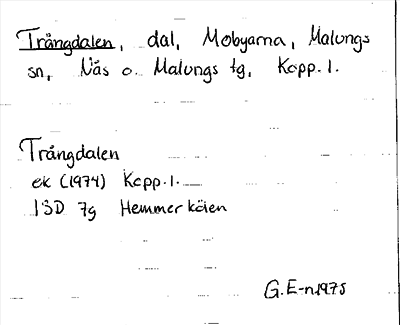 Trångdalen, dal, Mobyarna, Malungs
sn, Nås o. Malungs tg, Kopp. l.
Trångdalen
ek (1974) Kopp. l.
13D 7g Hemmerkölen
G.E-n 1975